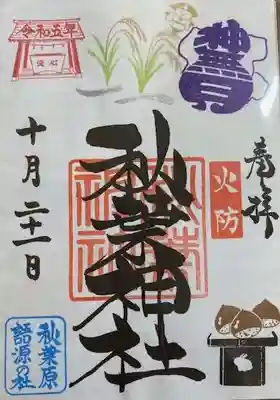 奉拝
火防
神無月
秋葉神社
秋葉神社
令和五年
十月二十一日
秋葉原
語源の社